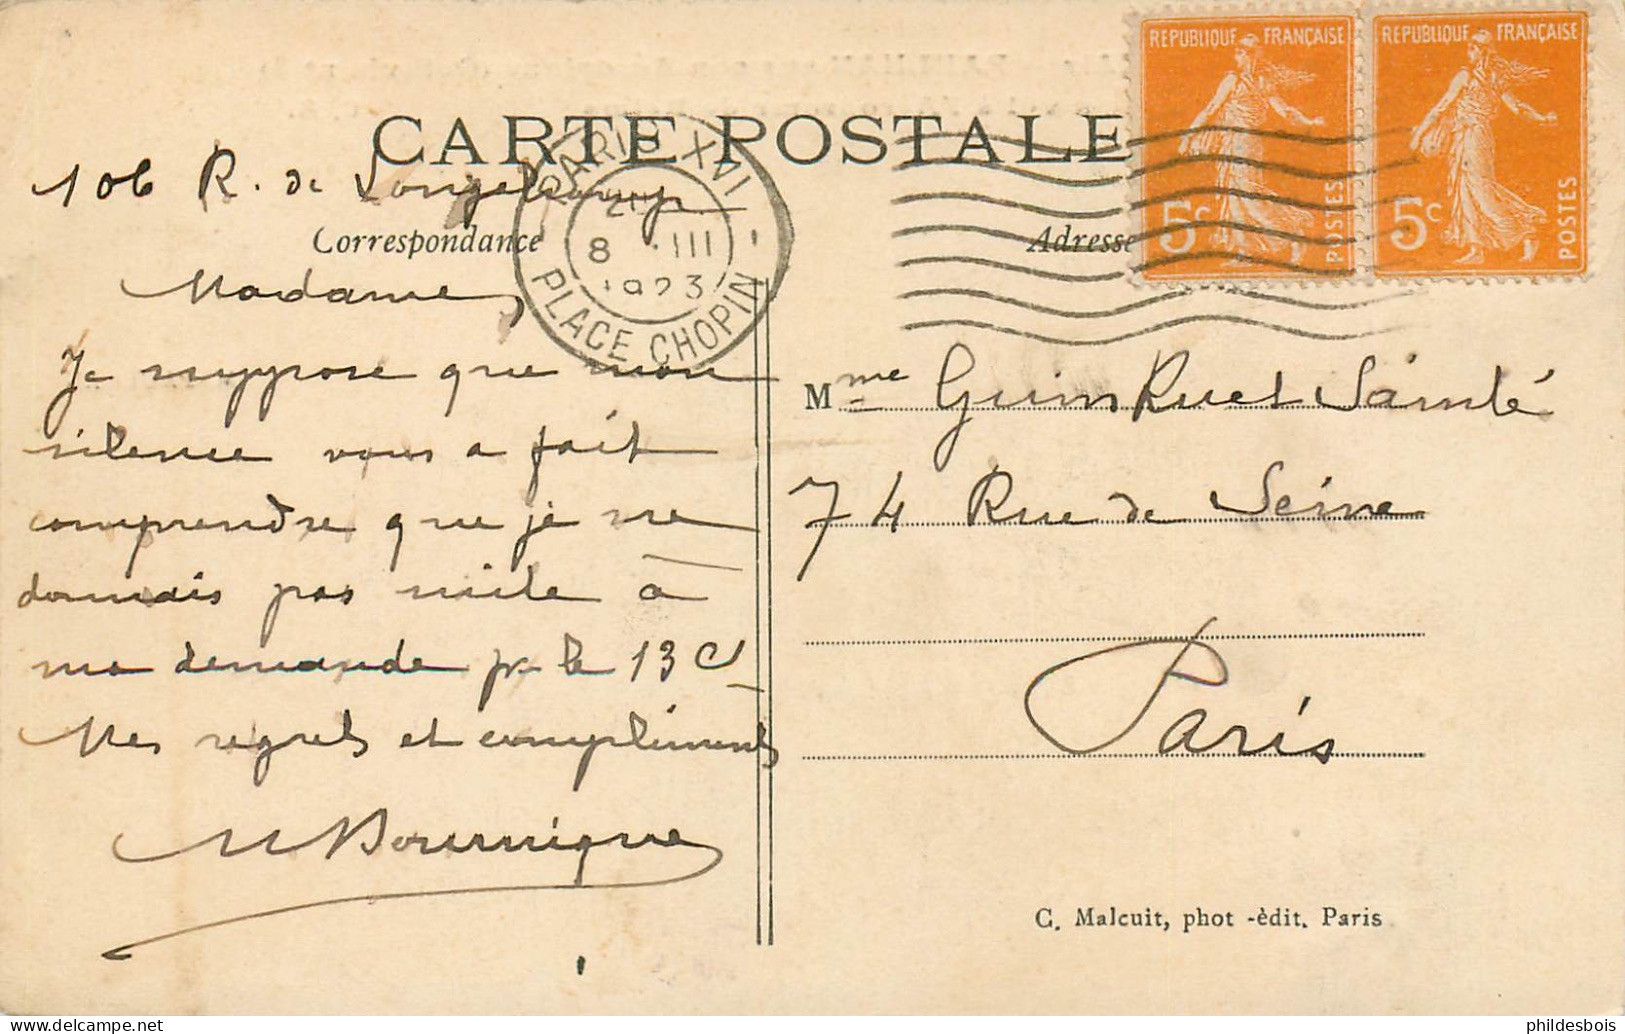 CARTE POSTALE
REPUBLIQUE FRANÇAISE
5c
POSTES
REPUBLIQUE FRANÇAISE
5c
POSTES
PARIS XVI
8 III
1923
PLACE CHOPIN
106 R. de Longchamp
Correspondance
Madame,
Je suppose que mon
silence vous a fait
comprendre que je ne
donnais pas suite à
ma demande pr le 13 Ct
Mes regrets et compliments
Adresse
Mme
74 Rue de Seine
Paris
C. Malcuit, phot -èdit. Paris
phildesbois